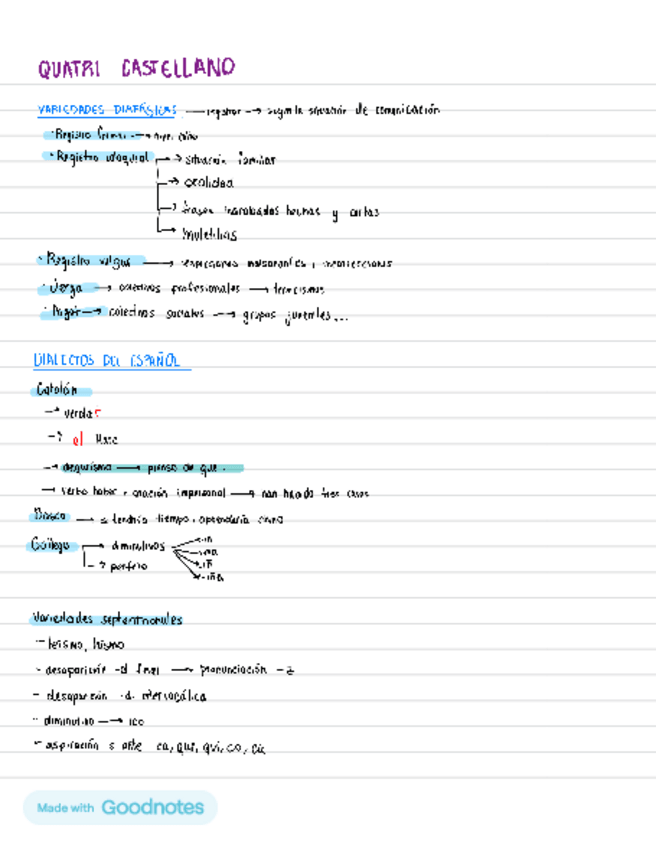 QUATRI CASTELLANO
VARIEDADES DIAFÁSICAS → registro → según la situación de comunicación
· Registro formal →
· Registro coloquial → situación familiar
→ oralidad
→ frases inacabadas hechas y cortas
→ muletillas
· Registro vulgar → expresiones malsonantes,
· Jerga → colectivos profesionales → tecnicismos
· Argot → colectivos sociales → grupos juveniles...
DIALECTOS DEL ESPAÑOL
Catalán
→ verdat
→ el Marc
→ dequeísmo → pienso de que.
→ verbo haber + oración impersonal → han habido tres casos
Basco → si tendría tiempo, aprendería chino
Gallego → diminutivos
→ perfeto
-iña
Variedades septentrionales
- leísmo, laísmo
- desaparición -d final → pronunciación -z
- desaparición -d- intervocálica
- diminutivo → ico
- aspiración s ante ca, que, qui, co, cu
Made with Goodnotes